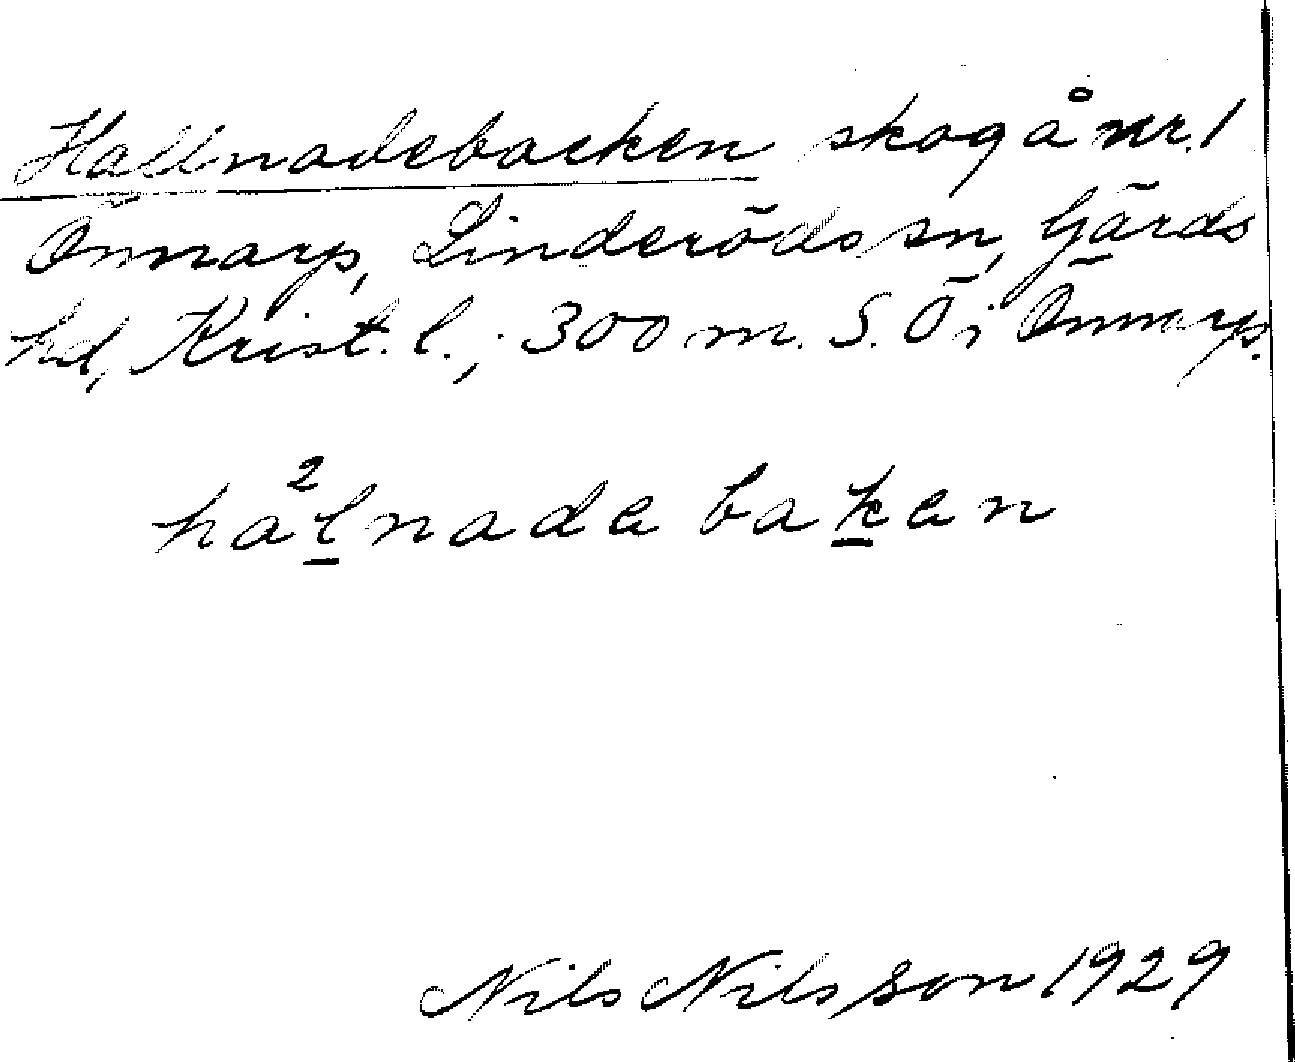 Hallnadebacken skog å nr. 1
Önnarp, Linderöds sn, Gärds
hd, Krist. l.; 300 m. S. Ö i Önnarp.
ha²l̲nade bak̲en
Nils Nilsson 1929